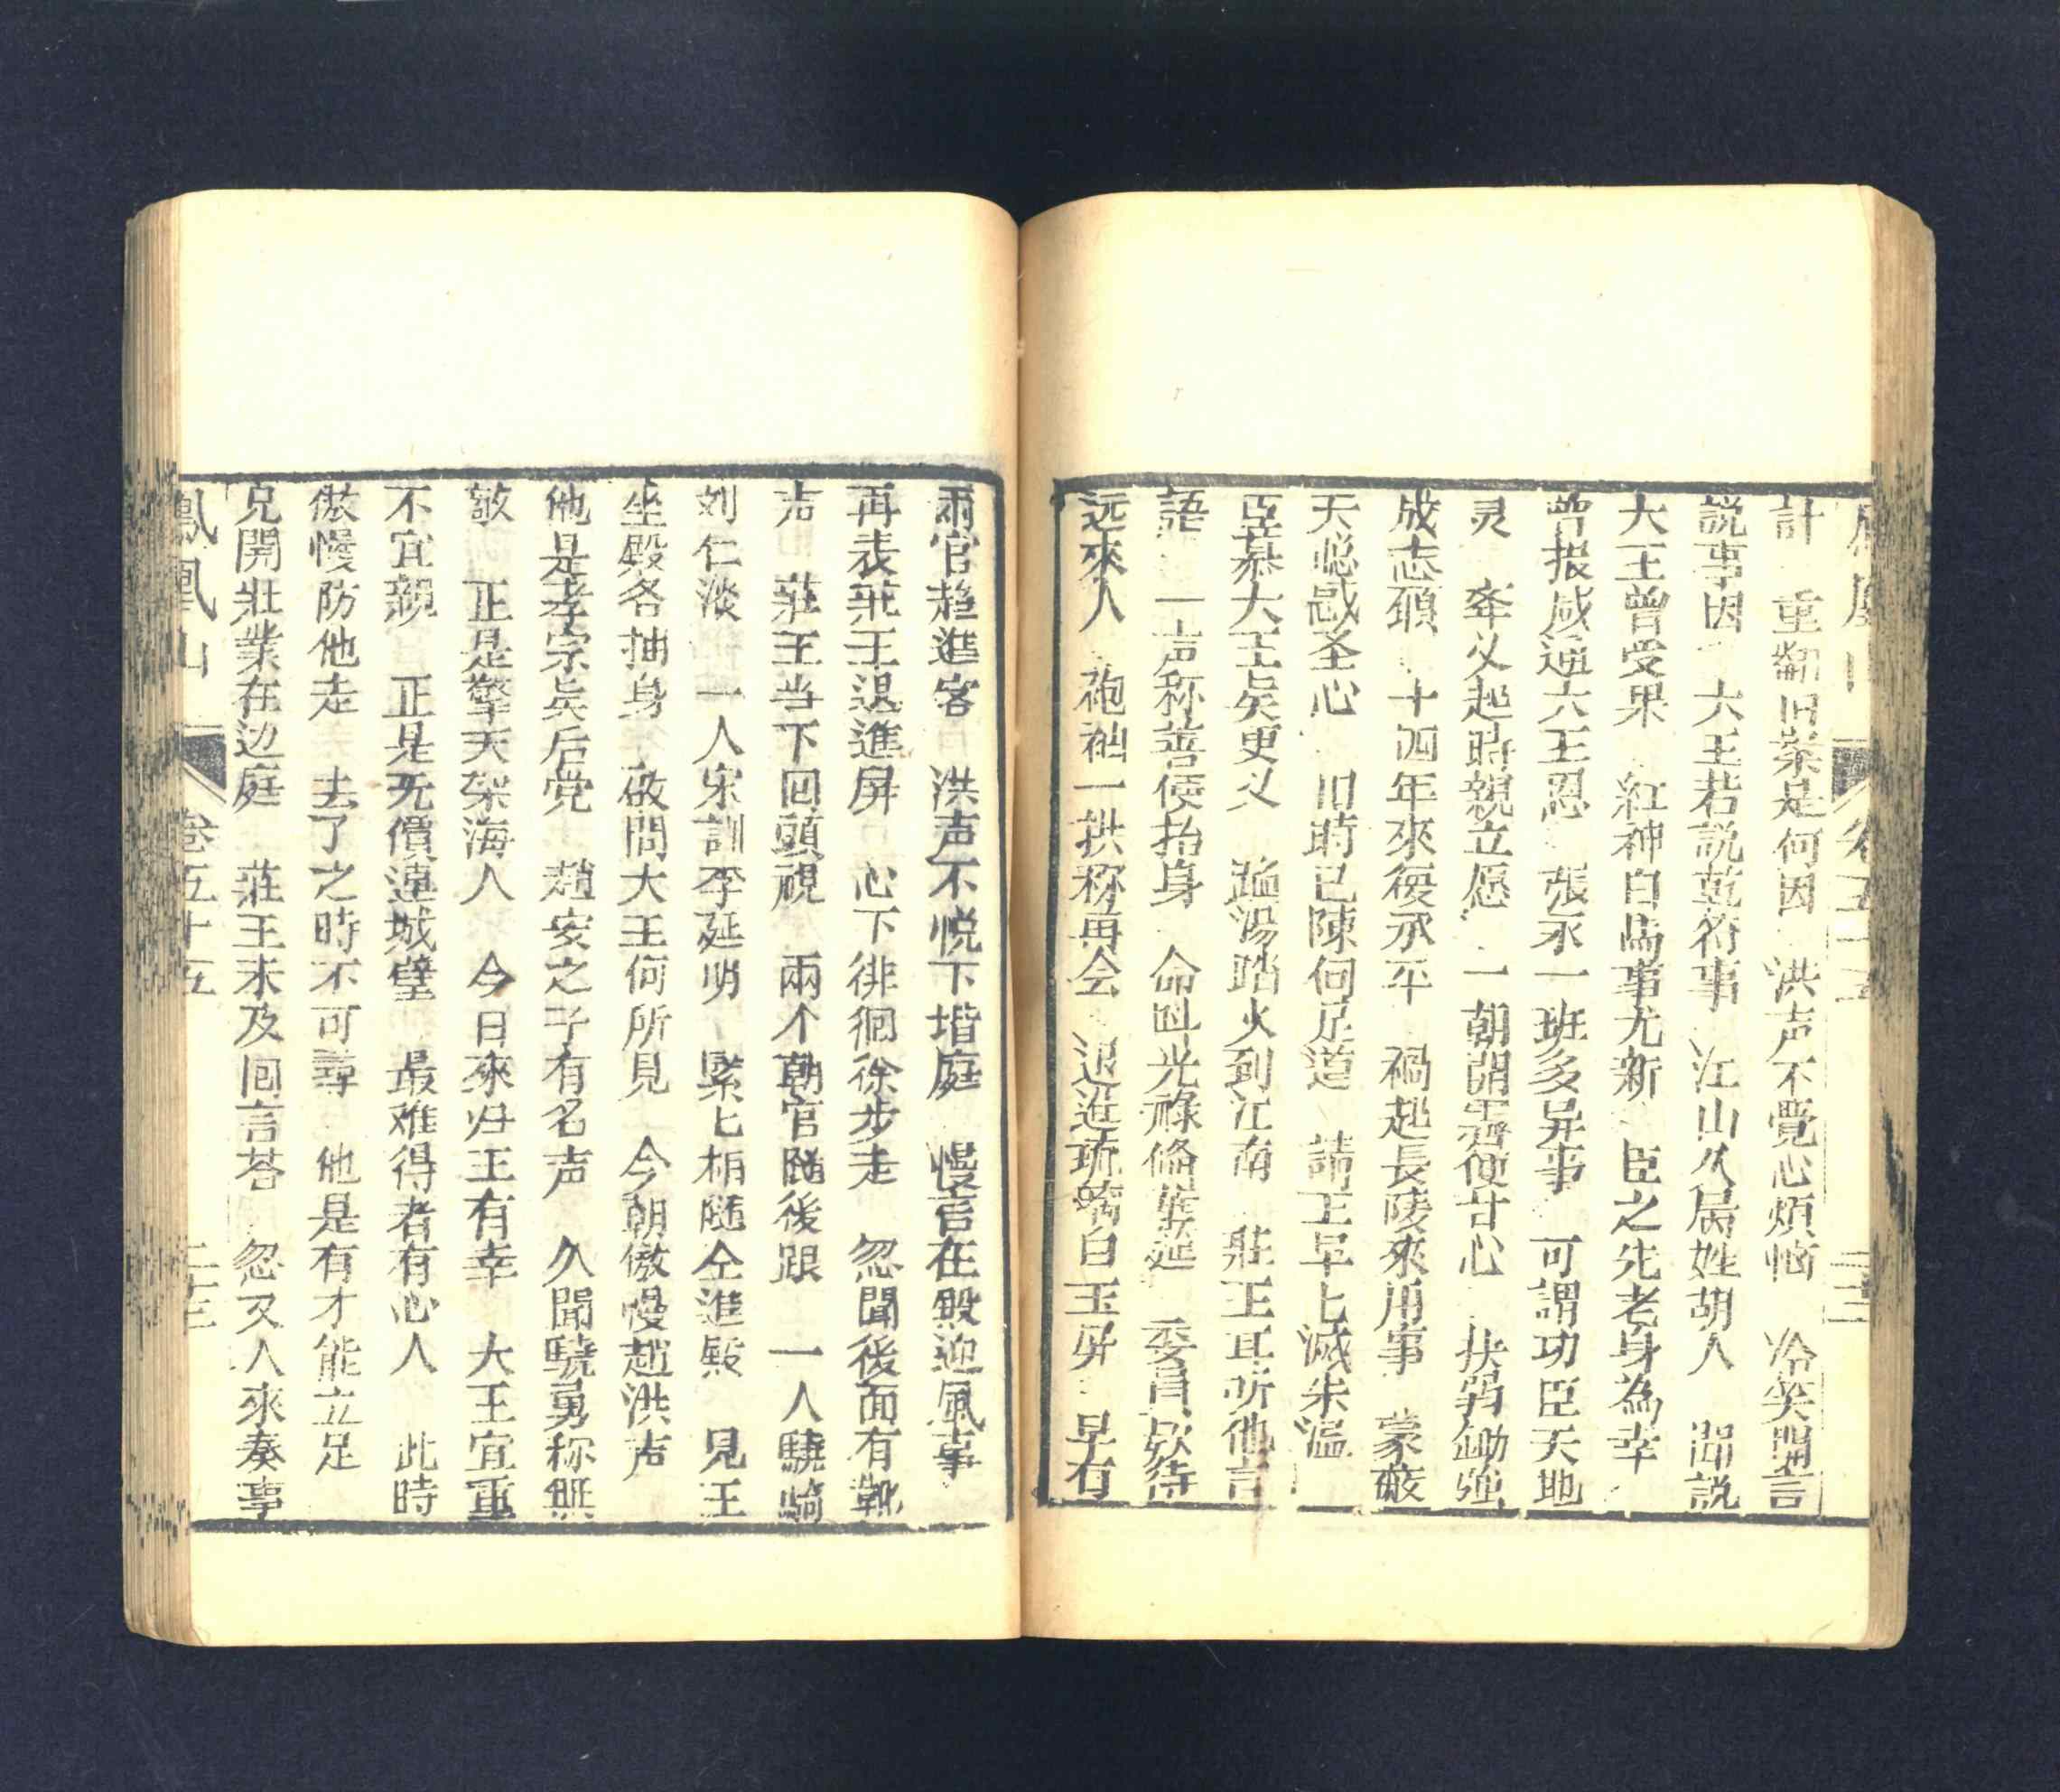 計　重翻旧案是何因　洪声不覺心煩惱　冷笑開言
説事因　大王若説苻事　江山久属姓胡人　説
大王曾受果　紅神白馬事尤新　臣之先老身為幸
曾报咸通六王恩　張承一班多异事　可謂功臣天地
灵　牽义起時親立愿　一朝開霽便甘心　扶弱鋤強
成志願　十四年來復承平　禍起長陵來用事　蒙蔽
天聡惑圣心　旧時已陳何足道　請王早匕滅朱温
臣慕大王矣更义　蹈湯踏火到江南　莊王耳听他言
語　一声称善便抬身　命叫光祿偹筵　委員欵待
远來人　袍袖一拱称再会　退進琉璃白玉屏　早有
兩官趋進客　洪声不悦下堦庭　慢言在殿迎風事
再表莊王退進屏　心下徘徊徐步走　忽聞後面有靴
声　莊王当下回頭視　兩个朝官随後跟　一人驍騎
刘仁淡　一人宋訓李延明　緊匕相随仝進殿　見王
坐殿各抽身　啟問大王何所見　今朝傲慢趙洪声
他是孝宗矣后党　趙安之子有名声　久聞驍勇称無
敵　正是擎天架海人　今日來归王有幸　大王宜重
不宜親　正是无價連城璧　最难得者有心人　此時
傲慢防他走　去了之時不可尋　他是有才能立足
克開壯業在边庭　莊王未及回言荅　忽又人來奏事
鳳凰山　卷五十五　二十三